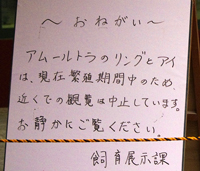 ～おねがい～
アムールトラのリングとアイ
は、現在繁殖期間中のため、
近くでの観覧は中止しています。
お静かにご覧ください。
飼育展示課